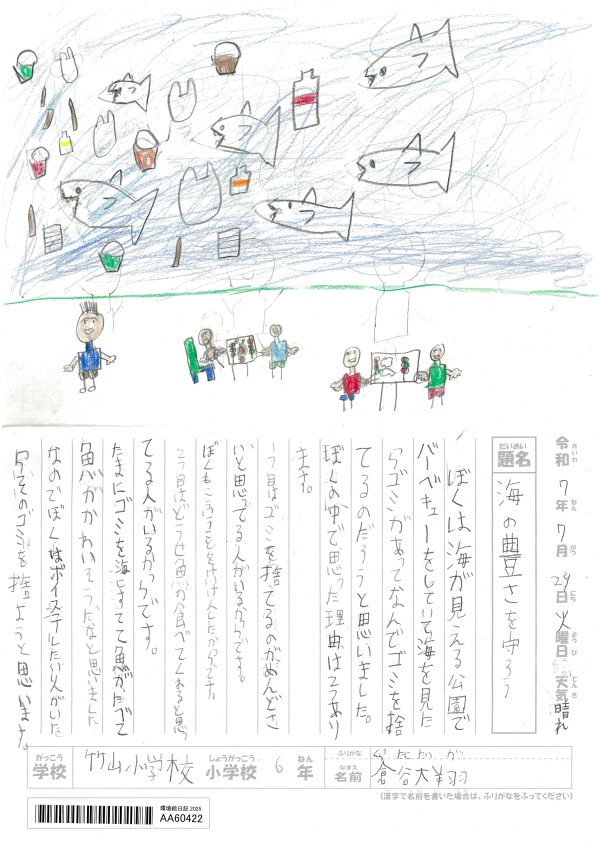 令和 7年 7月 29日 火曜日 天気 晴れ
れいわ ねん がつ にち ようび てんき
だいめい
題名 海の豊さを守ろう
ぼくは海が見える公園で
バーベキューをしていて海を見た
らゴミがあってなんでゴミを捨
てるのだろうと思いました。
ぼくの中で思った理由は2つあり
ます。
1つ目はゴミを捨てるのがめんどさ
いと思ってる人がいるからです。
2つ目はどうせ魚が食べてくれると思っ
てる人がいるからです。
たまにゴミを海にすてて魚がたべて
魚がかわいそうだなと思いました
なのでぼくはポイステしたい人がいた
らそのゴミを捨ようと思います。
がっこう
学校 竹山小学校 しょうがっこう
小学校 6 ねん
年 ふりがな
なまえ
名前 倉谷大翔
(漢字で名前を書いた場合は、ふりがなをふってください)
環境絵日記 2025
AA60422